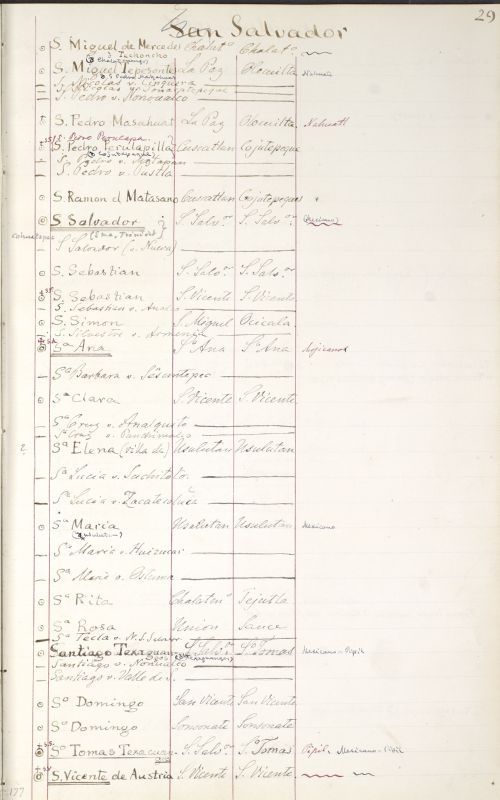 San Salvador 29
S. Miguel de Mercedes Chalatº Chalatº
S. Miguel Tepesontes La Paz Olocuilta Nahuatl
S. Nicolas v.
S. Pedro v. Nonoualco
S. Pedro Masahuat La Paz Olocuilta Nahuatl
S. Pedro Perulapa
S. Pedro Perulapilla Cuscatlan Cojutepeque
S. Pedro v. Metapan
S. Pedro v. Pustla
S. Ramon d Matasano Cuscatlan Cojutepeque
S Salvador S. Salvor S. Salvor (Mexicano)
S. Salvador (v. Nueva)
S. Sebastian S. Salvor S. Salvor
S. Sebastian S. Vicente S. Vicente
S. Sebastian v.
S. Simon S. Miguel Ocicala
S. Silvestre v.
Sª Ana Sª Ana Sª Ana Mejicanos
Sª Barbara v.
Sª Clara S. Vicente S. Vicente
Sª Cruz v. Analquito
Sª Cruz v. Panchimalco
Sª Elena (villa de) Usulutan Usulutan
Sª Lucia v. Suchitoto
Sª Lucia v. Zacatecoluca
Sª Maria Usulutan Usulutan Mexicano
(Usulutan)
Sª Maria v. Huizucar
Sª Maria v. Ostuma
Sª Rita Chalatenº Tejutla
Sª Rosa Union Sauce
Sª Tecla v. N. S. Salvor
Santiago Texaguan S. Salvor Sº Tomas Mexicano-Pipil
Santiago v. Nonualco
Santiago v. Valle de S.
Sº Domingo San Vicente San Vicente
Sº Domingo Sonsonate Sonsonate
Sº Tomas Texacuan. S. Salvor Sº Tomas Pipil. Mexicano-Pipil
S. Vicente de Austria S. Vicente S. Vicente
177